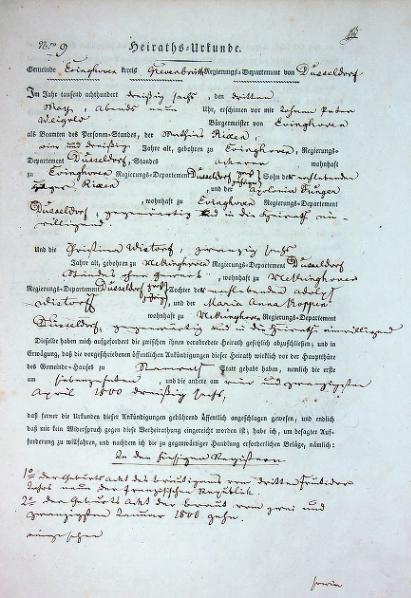 Nro 9 Heiraths-Urkunde.
Gemeinde Evinghoven Kreis Grevenbroich Regierungs-Departement von Düsseldorf
Im Jahr tausend achthundert dreißig sechs, den dritten
May, Abends neun Uhr, erschienen vor mir Johann Peter
Weigels Bürgermeister von Evinghoven
als Beamten des Personen-Standes, der Mathias Rixen,
vier und dreißig Jahre alt, gebohren zu Evinghoven, Regierungs-
Departement Düsseldorf, Standes Ackerer wohnhaft
zu Evinghoven Regierungs-Departement Düsseldorf Sohn des
Rixen, und der Apolonia
, wohnhaft zu Evinghoven Regierungs-Departement
Düsseldorf, gegenwärtig und in die Heirath ein-
willigend.
Und die Christina Wietorf, zwanzig sechs
Jahre alt, gebohren zu Regierungs-Departement Düsseldorf
Standes ohne Gewerb, wohnhaft zu
Regierungs-Departement Düsseldorf Tochter des Adolf
Wietorf, und der Maria Anna
wohnhaft zu Regierungs-Departement
Düsseldorf, gegenwärtig und in die Heirath einwilligend
Dieselbe haben mich aufgefordert die zwischen ihnen verabredete Heirath gesetzlich abzuschließen; und in
Erwägung, daß die vorgeschriebenen öffentlichen Ankündigungen dieser Heirath wirklich vor der Hauptthüre
des Gemeinde-Hauses zu Statt gehabt haben, nemlich die erste
am siebenzehnten, und die andere am vier und zwanzigsten
April 1800 dreißig sechs,
daß ferner die Urkunden dieser Ankündigungen gebührend öffentlich angeschlagen gewesen, und endlich
daß mir kein Widerspruch gegen diese Verheirathung eingereicht worden ist; habe ich, um besagter Auf-
forderung zu willfahren, und nachdem ich die zu gegenwärtiger Handlung erforderlichen Beläge, nämlich:
In den hiesigen Registern
1o der Geburts Akt des Bräutigams vom dritten
Jahrs neun der Französischen Republik.
2o der Geburts Akt der Braut vom zwei und
zwanzigsten Januar 1810
eingesehen